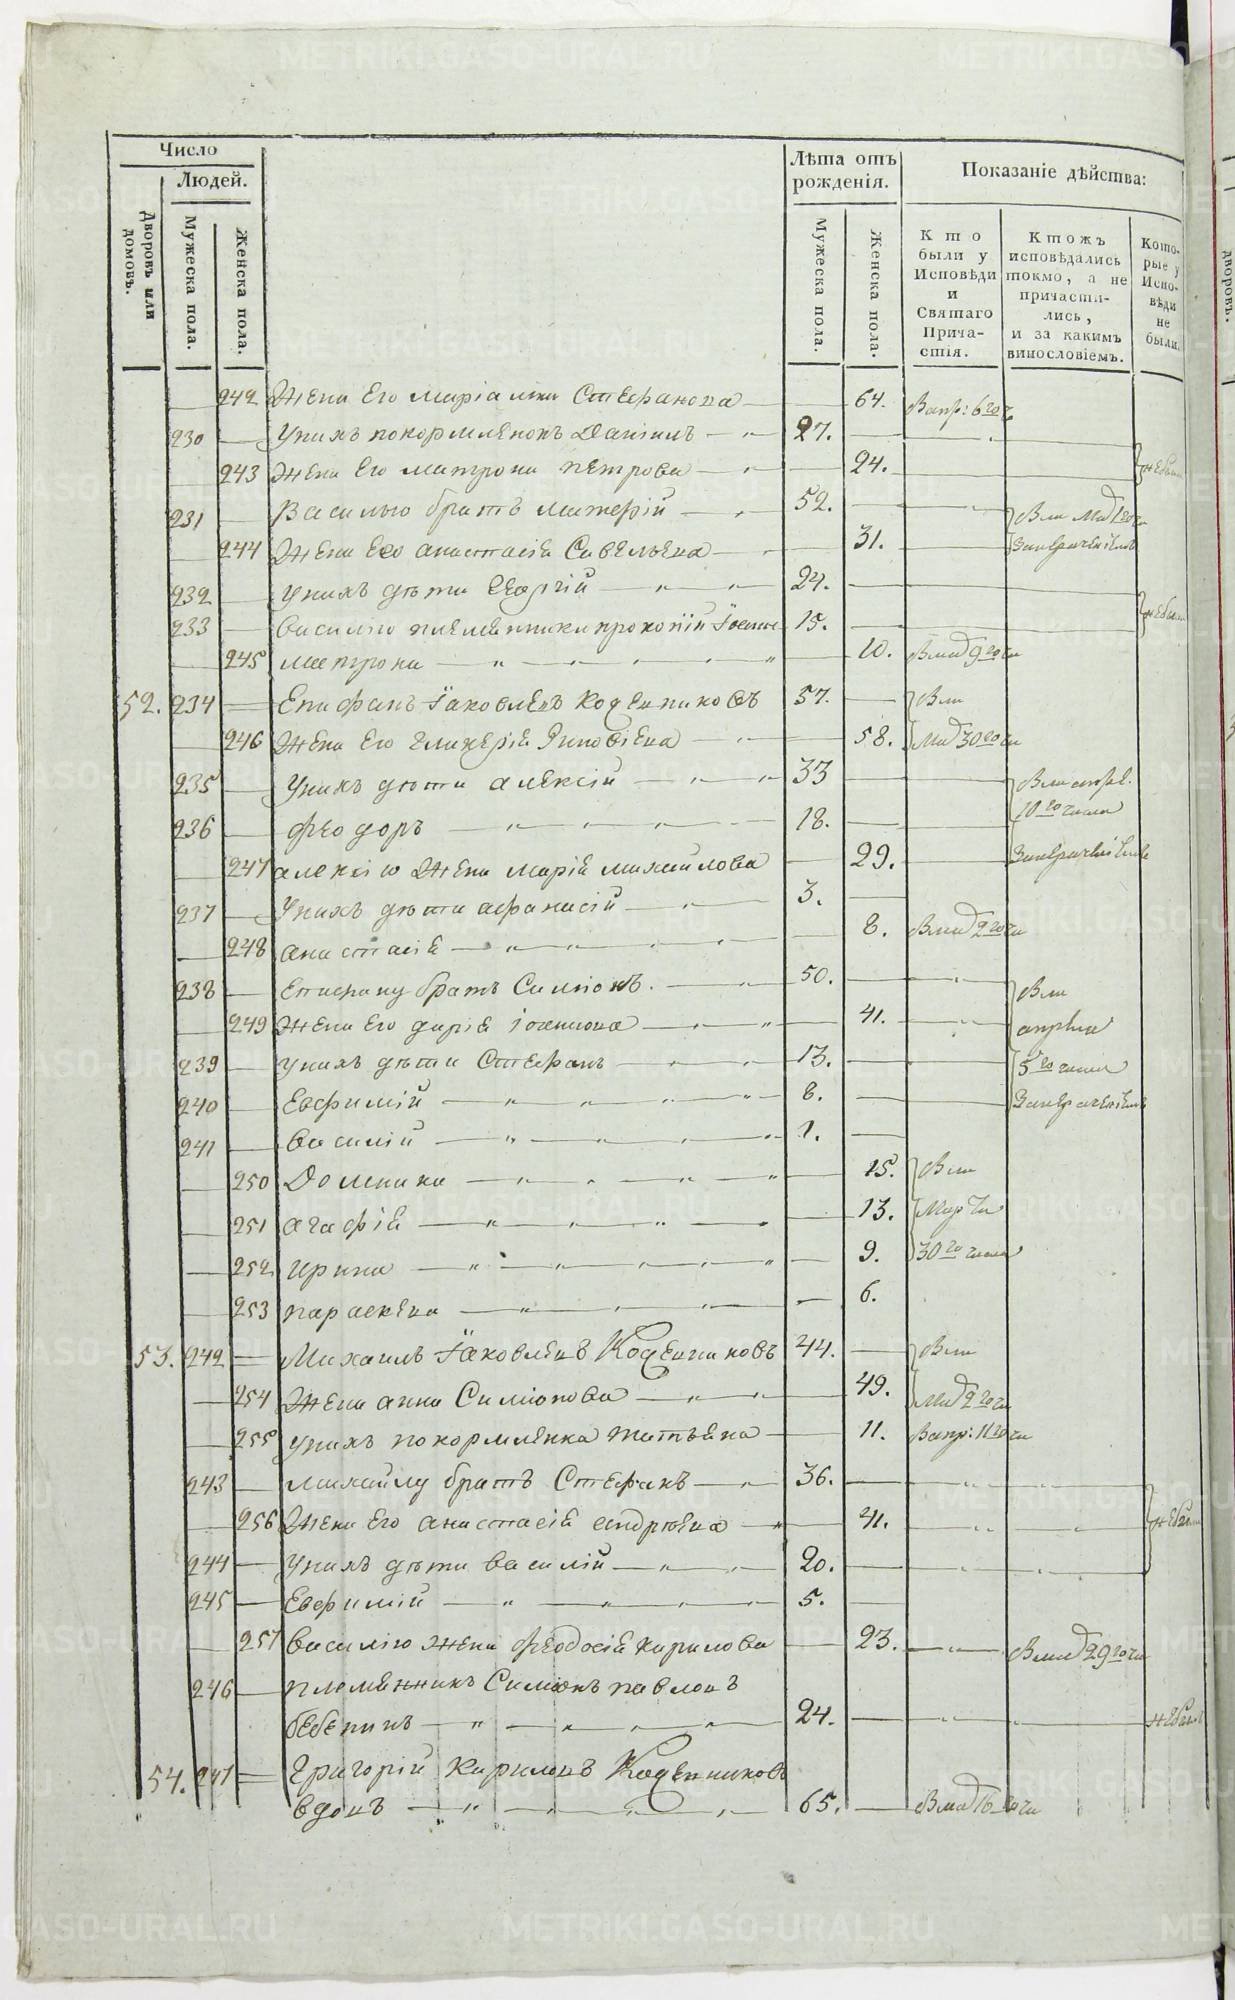 METRIKI.GASO-URAL.RU
Число
Людей.
Дворовъ или домовъ.
Мужеска пола.
Женска пола.
Лѣта отъ рожденія.
Мужеска пола.
Женска пола.
Показаніе дѣйства:
Кто были у Исповѣди и Святаго Прича-стія.
Ктожъ исповѣдались токмо, а не причасти-лись, и за какимъ винословіемъ.
Кото-рые у Испо-вѣди не были.
242 Жена Его Маріамна Стефанова 64. Вапр: 6го чи
230 У нихъ покормленокъ Даніилъ 27.
243 Жена Его Матрона Петрова 24. не были
231 Василью братъ Матѳеій 52.
244 Жена Его Анастасія Савельева 31.
232 У нихъ дѣти Георгій 24.
233 Василію племянники Прокопій Іоанно 15. не были
245 Матрона 10. В мар 9го чи
52. 234 Епифанъ Іаковлевъ Кодениковъ 57. Вели
246 Жена Его Гликерія Зиновіева 58. Мар 30го чи
235 У нихъ дѣти Алексій 33
236 Феодоръ 18. 10го числа
247 Алексію Жена Марія Михайлова 29.
237 У нихъ дѣти Афанасій 3.
248 Анастасія 8. В мар 2го чи
238 Епифану братъ Симіонъ. 50.
249 Жена Его Дарія Іоаннова 41. апрѣля
239 У нихъ дѣти Стефанъ 13. 5го числа
240 Евфимій 8.
241 Василій 1.
250 Домника 15.
251 Агафія 13. Марта
252 Ирина 9. 30го числа
253 Параскева 6.
53. 242 Михаилъ Іаковлевъ Кодениковъ 44.
254 Жена Анна Симіонова 49. Мар 2го чи
255 У нихъ покормленка Татьяна 11. Вапр: 11го чи
243 Михаилу братъ Стефанъ 36.
256 Жена Его Анастасія Андреева 41. не были
244 У нихъ дѣти Василій 20.
245 Евфимій 5.
257 Василію жена Феодосія Карилова 23. В мар 29го чи
246 племянникъ Симіонъ Павловъ
бебенинъ 24. не былъ
54. 247 Григорій Кириловъ Кодениковъ
вдовъ 65. В мар 16го чи